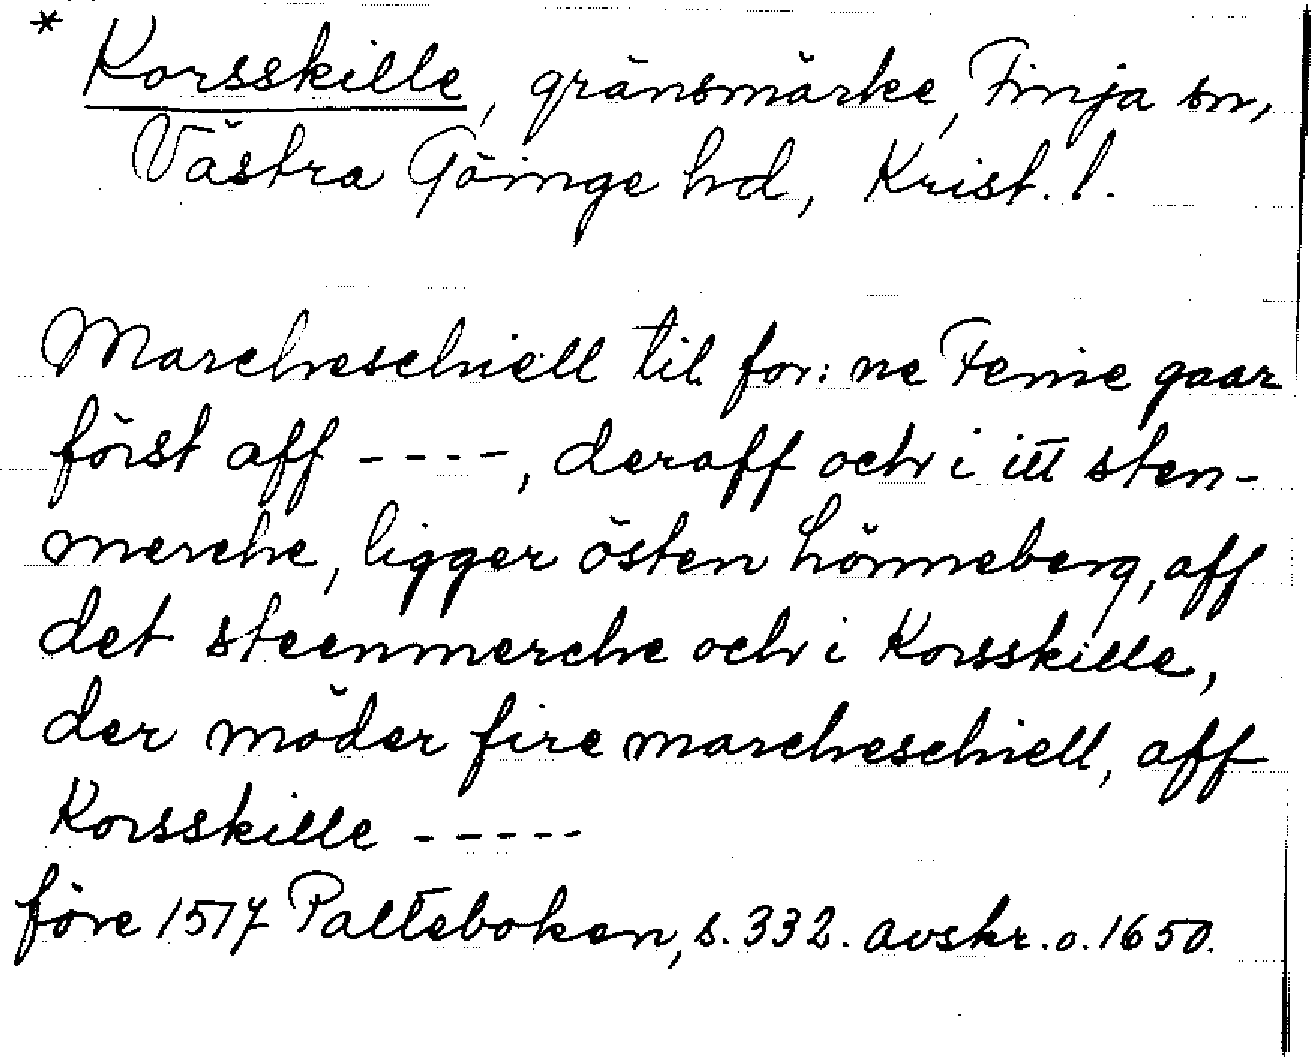 * Korsskille, gränsmärke, Finja sn,
Västra Göinge hd, Krist. l.
Marcheschiell til for: ne Feme gaar
först aff ----, deraff och i itt sten-
merche, ligger östen hönneberg, aff
det steenmerche och i Korsskille,
der möder fire marcheschiell, aff
Korsskille -----
före 1517 Palteboken, s. 332. avskr. o. 1650.